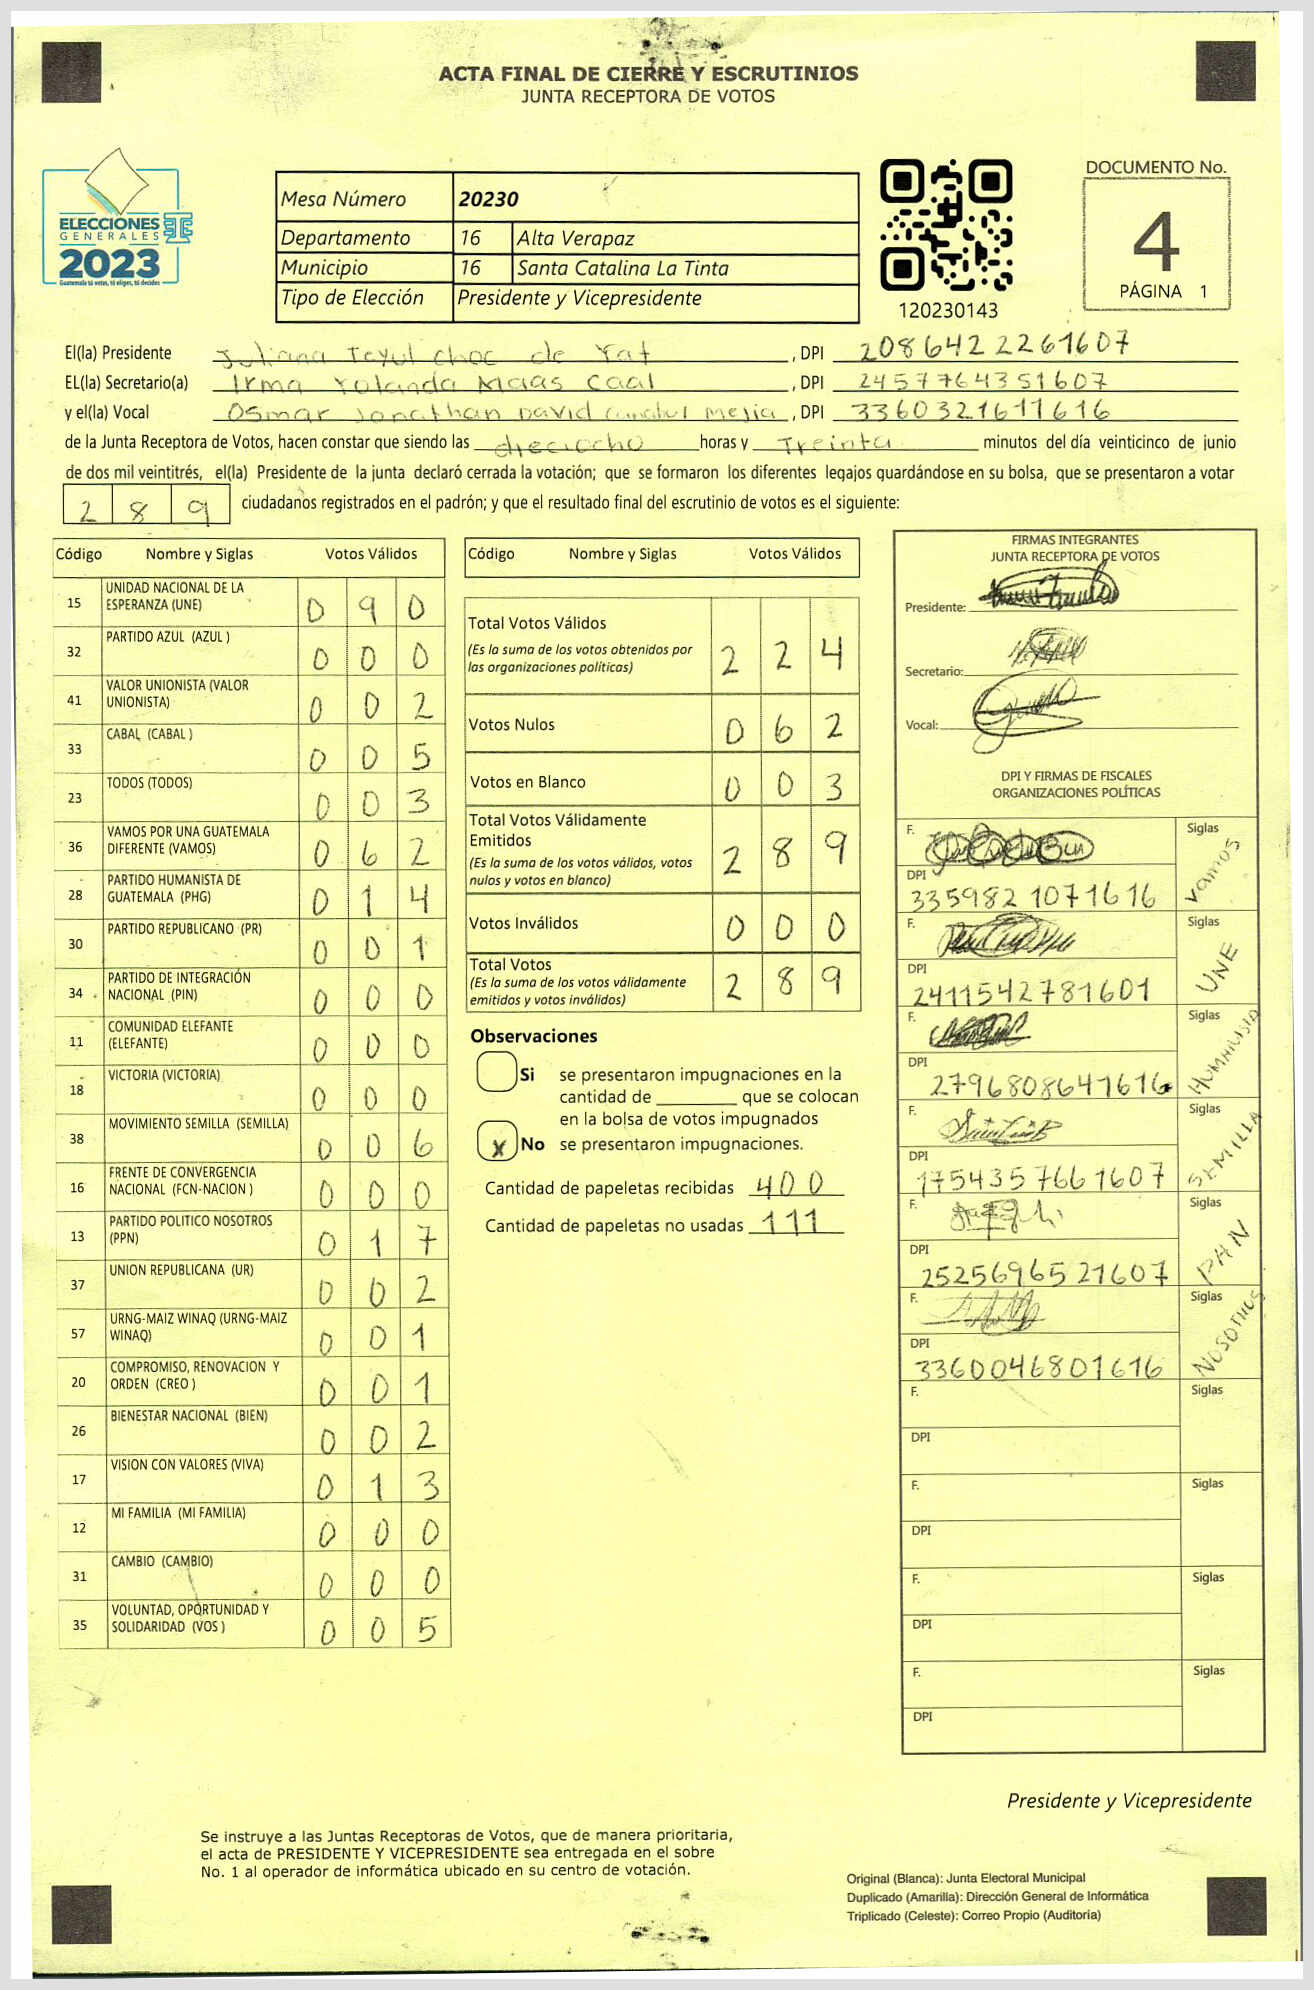 ACTA FINAL DE CIERRE Y ESCRUTINIOS
JUNTA RECEPTORA DE VOTOS
ELECCIONES
GENERALES
2023
Guatemala tú votas, tú eliges, tú decides
Mesa Número 20230
Departamento 16 Alta Verapaz
Municipio 16 Santa Catalina La Tinta
Tipo de Elección Presidente y Vicepresidente
120230143
DOCUMENTO No.
4
PÁGINA 1
El(la) Presidente Juliana Teyul choc de Yat , DPI 2086422261607
EL(la) Secretario(a) Irma Yolanda Maas Caal , DPI 2457764351607
y el(la) Vocal Osmar Jonathan David Mejia , DPI 3360321611616
de la Junta Receptora de Votos, hacen constar que siendo las dieciocho horas y Treinta minutos del día veinticinco de junio
de dos mil veintitrés, el(la) Presidente de la junta declaró cerrada la votación; que se formaron los diferentes legajos guardándose en su bolsa, que se presentaron a votar
2 8 9 ciudadanos registrados en el padrón; y que el resultado final del escrutinio de votos es el siguiente:
Código Nombre y Siglas Votos Válidos
15 UNIDAD NACIONAL DE LA ESPERANZA (UNE) 0 9 0
32 PARTIDO AZUL (AZUL ) 0 0 0
41 VALOR UNIONISTA (VALOR UNIONISTA) 0 0 2
33 CABAL (CABAL ) 0 0 5
23 TODOS (TODOS) 0 0 3
36 VAMOS POR UNA GUATEMALA DIFERENTE (VAMOS) 0 6 2
28 PARTIDO HUMANISTA DE GUATEMALA (PHG) 0 1 4
30 PARTIDO REPUBLICANO (PR) 0 0 1
34 PARTIDO DE INTEGRACIÓN NACIONAL (PIN) 0 0 0
11 COMUNIDAD ELEFANTE (ELEFANTE) 0 0 0
18 VICTORIA (VICTORIA) 0 0 0
38 MOVIMIENTO SEMILLA (SEMILLA) 0 0 6
16 FRENTE DE CONVERGENCIA NACIONAL (FCN-NACION ) 0 0 0
13 PARTIDO POLITICO NOSOTROS (PPN) 0 1 7
37 UNION REPUBLICANA (UR) 0 0 2
57 URNG-MAIZ WINAQ (URNG-MAIZ WINAQ) 0 0 1
20 COMPROMISO, RENOVACION Y ORDEN (CREO ) 0 0 1
26 BIENESTAR NACIONAL (BIEN) 0 0 2
17 VISION CON VALORES (VIVA) 0 1 3
12 MI FAMILIA (MI FAMILIA) 0 0 0
31 CAMBIO (CAMBIO) 0 0 0
35 VOLUNTAD, OPORTUNIDAD Y SOLIDARIDAD (VOS ) 0 0 5
Código Nombre y Siglas Votos Válidos
Total Votos Válidos 2 2 4
(Es la suma de los votos obtenidos por
las organizaciones políticas)
Votos Nulos 0 6 2
Votos en Blanco 0 0 3
Total Votos Válidamente
Emitidos 2 8 9
(Es la suma de los votos válidos, votos
nulos y votos en blanco)
Votos Inválidos 0 0 0
Total Votos 2 8 9
(Es la suma de los votos válidamente
emitidos y votos inválidos)
Observaciones
Si se presentaron impugnaciones en la
cantidad de ________ que se colocan
en la bolsa de votos impugnados
X No se presentaron impugnaciones.
Cantidad de papeletas recibidas 400
Cantidad de papeletas no usadas 111
FIRMAS INTEGRANTES
JUNTA RECEPTORA DE VOTOS
Presidente:
Secretario:
Vocal:
DPI Y FIRMAS DE FISCALES
ORGANIZACIONES POLÍTICAS
F. Siglas Vamos
DPI 335982 1071616
F. Siglas UNE
DPI 2411542781601
F. Siglas HUMANISTA
DPI 2796808641616
F. Siglas SEMILLA
DPI 1754357661607
F. Siglas PAN
DPI 2525696521607
F. Siglas NOSOTROS
DPI 3360046801616
F. Siglas
DPI
F. Siglas
DPI
F. Siglas
DPI
F. Siglas
DPI
Presidente y Vicepresidente
Se instruye a las Juntas Receptoras de Votos, que de manera prioritaria,
el acta de PRESIDENTE Y VICEPRESIDENTE sea entregada en el sobre
No. 1 al operador de informática ubicado en su centro de votación.
Original (Blanca): Junta Electoral Municipal
Duplicado (Amarilla): Dirección General de Informática
Triplicado (Celeste): Correo Propio (Auditoría)